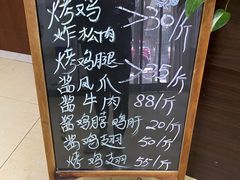 烤鸡 >30/斤
炸松肉
烧鸡腿 >25/斤
酱凤爪
酱牛肉 88/斤
酱鸡脖鸡肝 20/斤
酱鸡翅 50/斤
烤鸡翅 55/斤